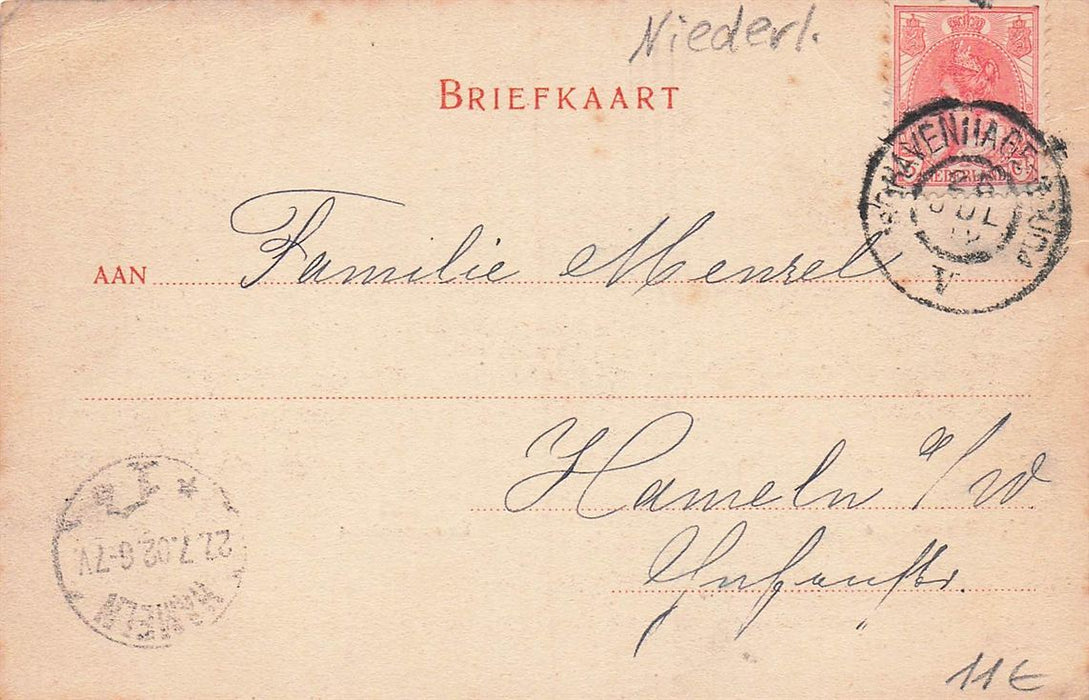 Niederl.
BRIEFKAART
NEDERLAND
'S-GRAVENHAGE
JUL
V
AAN Familie Menzel
Hameln a/W
22.7.02.6-7V.
HAMELN
11€